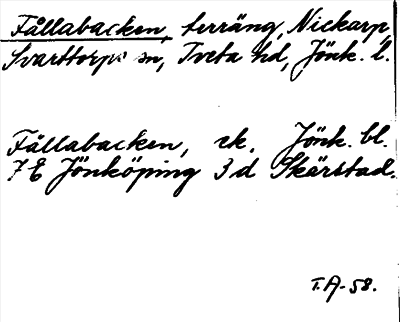 Fållabacken, terräng, Nickarp,
Svarttorps sn, Tveta hd, Jönk. l.
Fållabacken, ek. Jönk. bl.
7E Jönköping 3d Skärstad.
T.A-58.